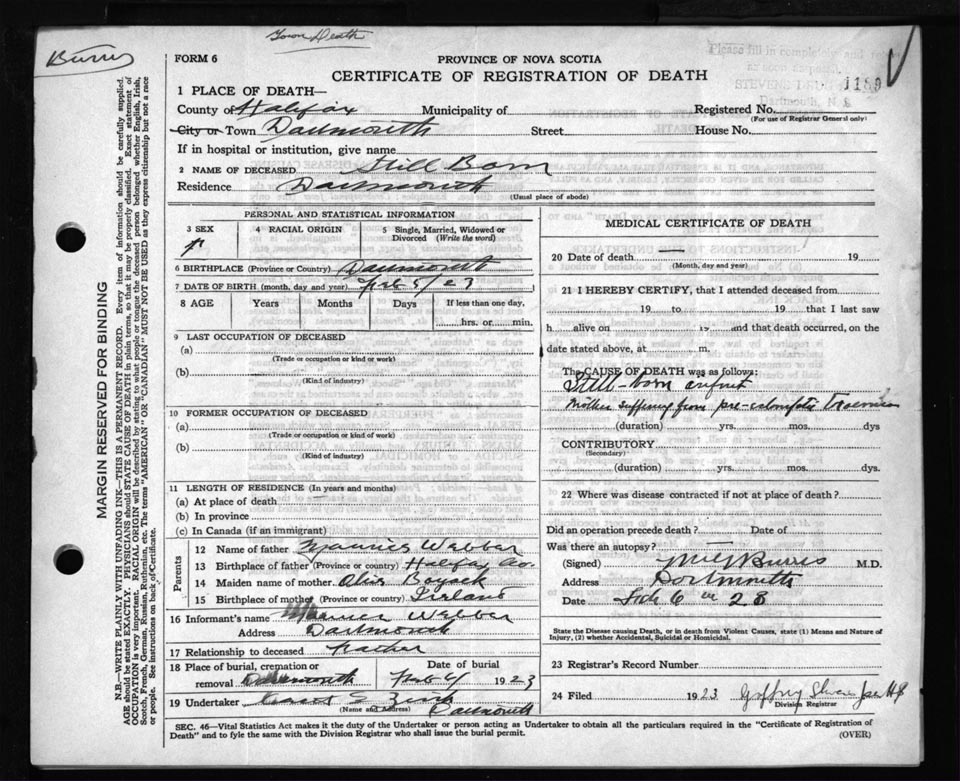 Town Death
Burris
FORM 6
PROVINCE OF NOVA SCOTIA
CERTIFICATE OF REGISTRATION OF DEATH
Please fill in completely and
1189
1 PLACE OF DEATH—
County of Halifax Municipality of Registered No.
(For use of Registrar General only)
City or Town Dartmouth Street House No.
If in hospital or institution, give name
2 NAME OF DECEASED Still Born
Residence Dartmouth
(Usual place of abode)
PERSONAL AND STATISTICAL INFORMATION
3 SEX
4 RACIAL ORIGIN
5 Single, Married, Widowed or Divorced (Write the word)
6 BIRTHPLACE (Province or Country) Dartmouth
7 DATE OF BIRTH (month, day and year) Feb 5/23
8 AGE Years Months Days If less than one day,
hrs. or min.
9 LAST OCCUPATION OF DECEASED
(a)
(Trade or occupation or kind or work)
(b)
(Kind of industry)
10 FORMER OCCUPATION OF DECEASED
(a)
(Trade or occupation or kind of work)
(b)
(Kind of industry)
11 LENGTH OF RESIDENCE (In years and months)
(a) At place of death
(b) In province
(c) In Canada (if an immigrant)
Parents
12 Name of father Webber
13 Birthplace of father (Province or country) Halifax Co.
14 Maiden name of mother
15 Birthplace of mother (Province or country) Ireland
16 Informant's name Webber
Address Dartmouth
17 Relationship to deceased Father
18 Place of burial, cremation or Date of burial
removal Dartmouth Feb 6/ 1923
19 Undertaker
(Name and Address) Dartmouth
MEDICAL CERTIFICATE OF DEATH
20 Date of death 19
(Month, day and year)
21 I HEREBY CERTIFY, that I attended deceased from
19 to 19 that I last saw
h alive on 19 and that death occurred, on the
date stated above, at m.
The CAUSE OF DEATH was as follows:
Still-born infant
Mother suffering from pre-eclamptic Toxemia
(duration) yrs. mos. dys
CONTRIBUTORY
(Secondary)
(duration) yrs. mos. dys.
22 Where was disease contracted if not at place of death?
Did an operation precede death? Date of
Was there an autopsy?
(Signed) Burris M.D.
Address Dartmouth
Date Feb 6th 23
State the Disease causing Death, or in death from Violent Causes, state (1) Means and Nature of
Injury, (2) whether Accidental, Suicidal or Homicidal.
23 Registrar's Record Number
24 Filed 1923
Division Registrar
SEC. 46—Vital Statistics Act makes it the duty of the Undertaker or person acting as Undertaker to obtain all the particulars required in the "Certificate of Registration of
Death" and to fyle the same with the Division Registrar who shall issue the burial permit.
(OVER)
MARGIN RESERVED FOR BINDING
N.B.—WRITE PLAINLY WITH UNFADING INK—THIS IS A PERMANENT RECORD. Every item of information should be carefully supplied.
AGE should be stated EXACTLY. PHYSICIANS should STATE CAUSE OF DEATH in plain terms, so that it may be properly classified. Exact statement of
OCCUPATION is very important. RACIAL ORIGIN will be described by stating to what people or tongue the deceased person belonged whether English, Irish,
Scotch, French, German, Russian, Ruthenian, etc. The terms "AMERICAN" OR "CANADIAN" MUST NOT BE USED as they express citizenship but not a race
or people. See instructions on back of Certificate.